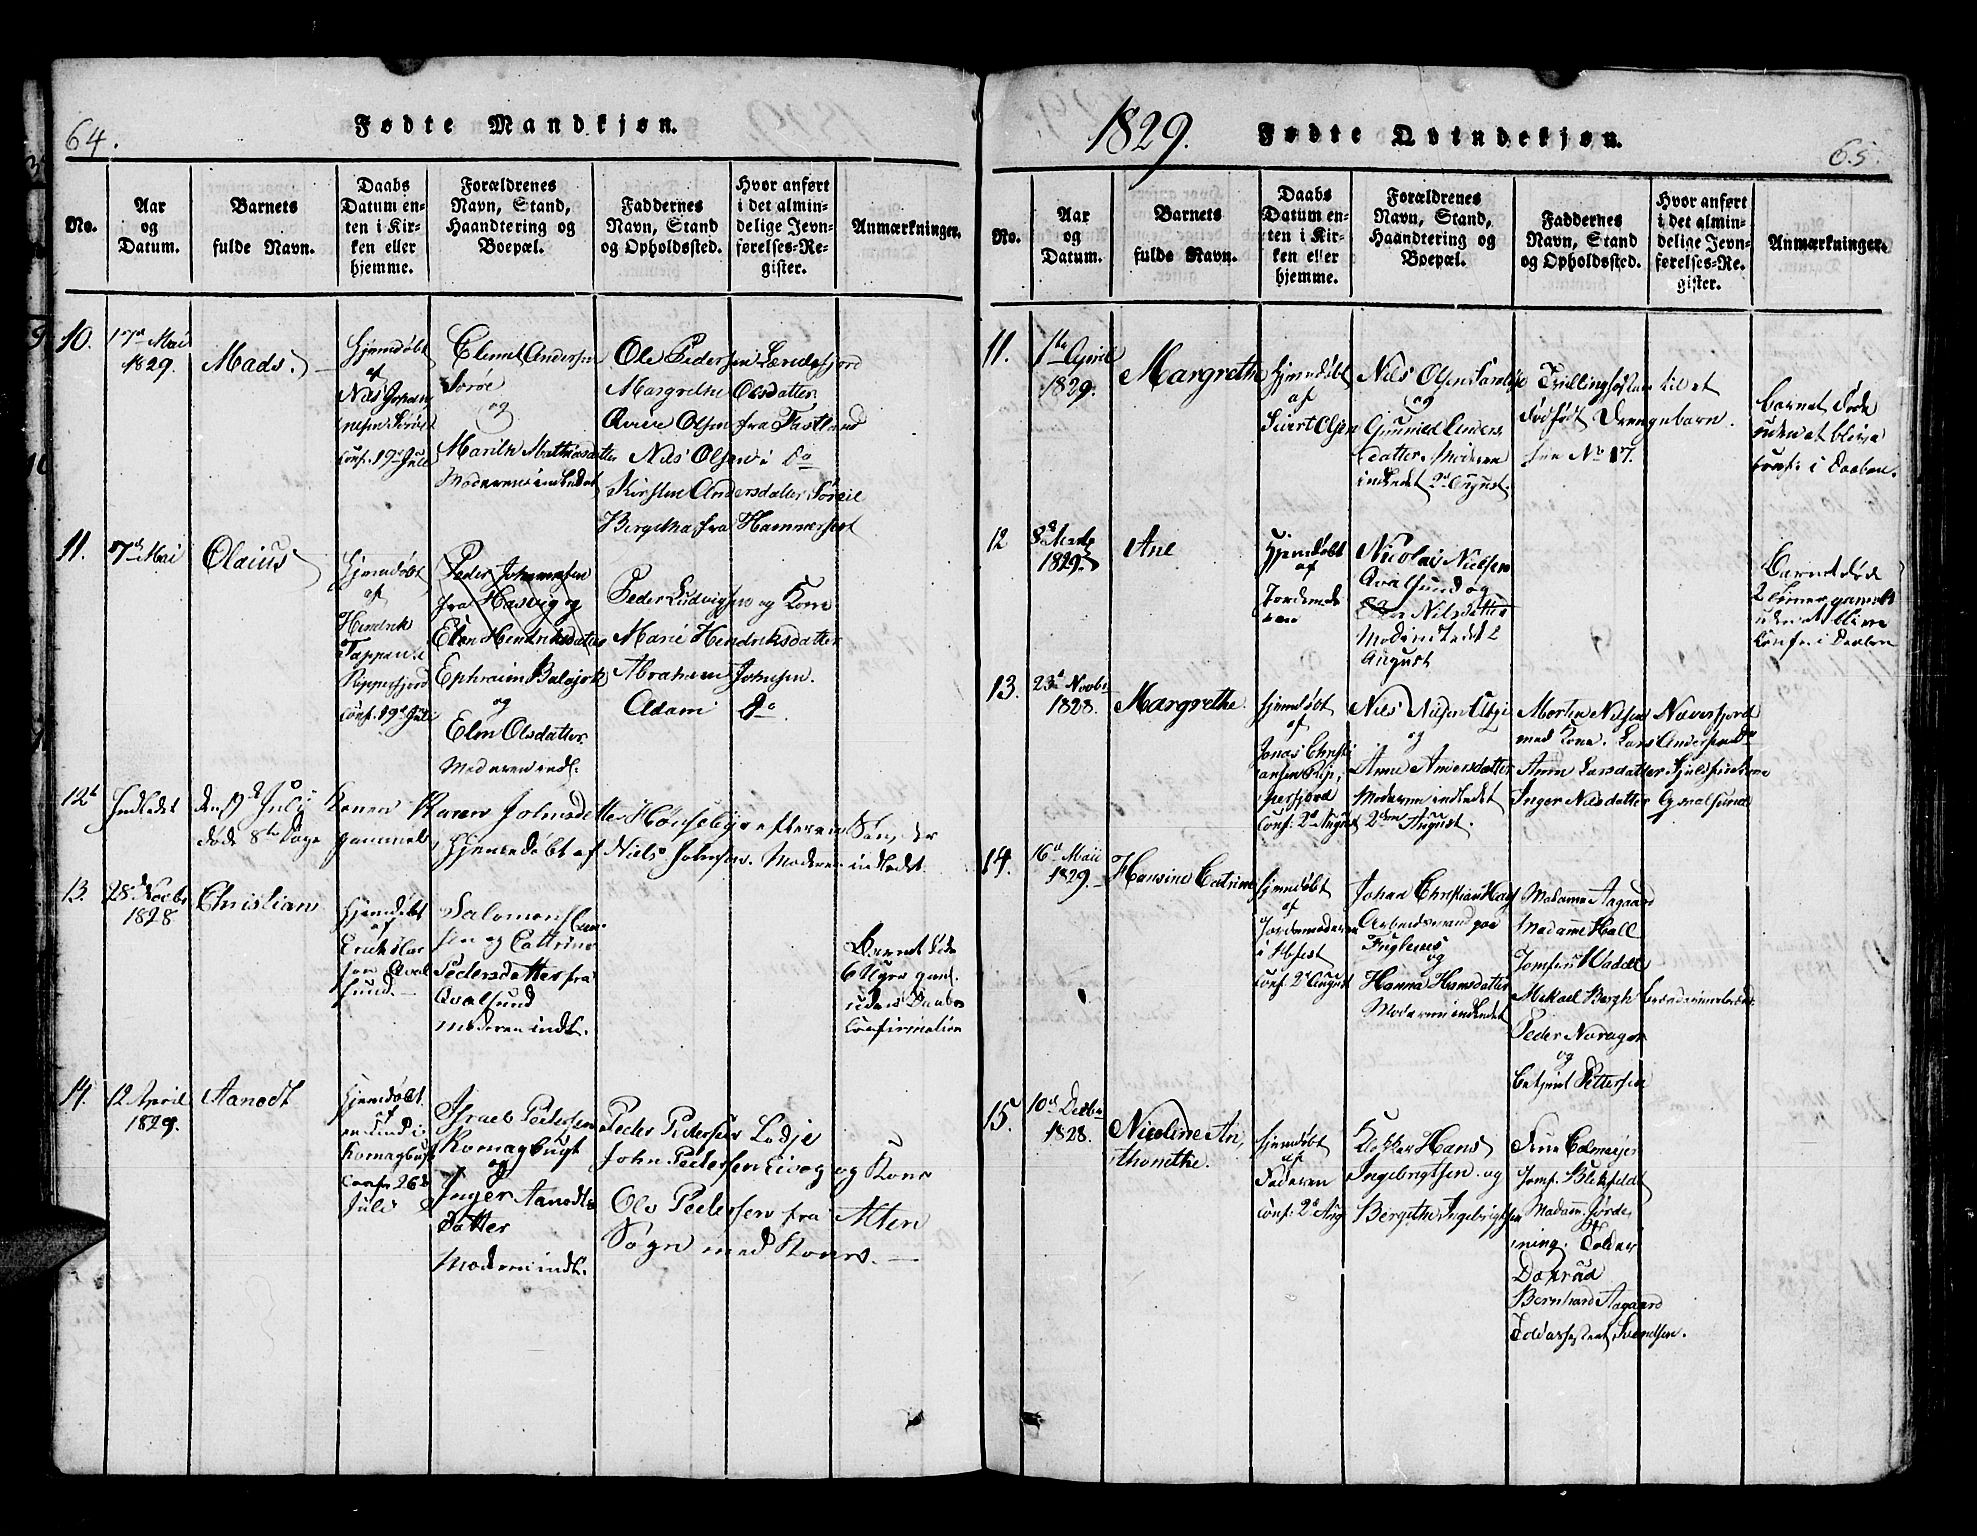 64.
Fødte Mandkjøn.
No.
Aar
og
Datum.
Barnets
fulde Navn.
Daabs
Datum en-
ten i Kir-
ken eller
hjemme.
Forældrenes
Navn, Stand,
Haandtering og
Boepæl.
Faddernes
Navn, Stand
og Opholdssted.
Hvor anført
i det almin-
delige Jevn-
førelses-Re-
gister.
Anmærkninger.
10.
17d Mai
1829.
Mads.
Hjemdøbt
af
Nils Johan
nesen Sørøe
Conf. 19d Juli
Clemet Andersen
Sorøe
og
Marith Mathiasdatter
Moderen indledet
Ole Pedersen Lerrisfjord
Margrethe Olsdatter
Olsen fra Fastland
Nils Olsen i Do
Kirsten Andersdatter
Bergitha fra Hammerfest
11.
7d Mai
Olaius
Hjemdøbt
af
Henrik
Tappen
Reppefjord
Conf. 19d Juli
Peder Johannesen
fra Hasvig og
Elen Hendriksdatter
Ephraim
og
Elen Olsdatter
Moderen indl.
Peder Ludvigsen og Kone
Marie Hendriksdatter
Abraham Johnsen.
Adam Do
12t
Indledet den 19d July Konen Karen Johnsdatter efter en Søn, der
døde 8te Dage gammel, Hjemedøbt af Niels Johnsen. Moderen indledet.
13.
28d Novbr
1828
Christian
Hjemdøbt
af
Erich Lar
sen Qval
sund.
Salomon
sen og Cattrine
Pedersdatter fra
Qvalsund
Moderen indl.
Barnet døde
6 Uger gaml.
uden Daabs
Confirmation
14.
12 April
1829.
Aanodt
Hjemdøbt
af
en Lind i
Komagbugt
Conf. 26d
Juli
Israel Pedersen
Komagbugt
og
Inger Aanodts
datter
Moderen indl.
Peder Pedersen Lodje
John Pedersen og Kone
Ole Pedersen fra Alten
Sogn med Kone. —
1829.
Fødte Qvindekjøn.
65.
No.
Aar
og
Datum.
Barnets
fulde Navn.
Daabs
Datum en-
ten i Kir-
ken eller
hjemme.
Forældrenes
Navn, Stand,
Haandtering og
Boepæl.
Faddernes
Navn, Stand
og Opholdssted.
Hvor anført
i det almin-
delige Jevn-
førelses-Re-
gister.
Anmærkninger.
11.
1ste April
1829.
Margrethe
Hjemdøbt
af
Sivert Olsen
Nils Olsen
og
Gunnild Anders
datter. Moderen
indledet 2d August.
Tvillingsøster til et
dødfødt Drengebarn.
see No 17.
Barnet døde
uden at blive
Conf: i Daaben.
12
8d Marts
1829.
Ane
Hjemdøbt
af
Jordemode
ren
Nicolai Nielsen
Qvalsund og
Ellen Nilsdatter
Mod. indledet 2
August
Barnet døde
gammelt
uden at blive
Conf. i Daaben
13.
23d Novbr
1828.
Margrethe
Hjemdøbt
af
Jonas Christi
ansen Rep,
pefjord
Conf: 2d August
Nils Nilsen
og
Anne Andersdatter
Moderen indledet
2den August.
Morten Nilsen Næverfjord
med Kone. Lars Andersen Do
Anne Larsdatter
Inger Nilsdatter Qvalsund
14.
16d Mai
1829.
Hansine Catrine
Hjemdøbt
af
Jordemoderen
i Hfest
Conf. 2d August
Johan Christian
Arbeidsmand paa
Fuglenes
og
Hanna Hansdatter
Moderen indledet
Madame Aagaard
Madame Hall
Jomfru Waddel
Mikael Bergh
Peder Norager
og
Pettersen
15.
10d Decbr
1828.
Nicoline An,
thonethe.
Hjemdøbt
af
Faderen
Conf: 2d Aug
Klokker Hans
Ingebrigtsen og
Bergithe Ingebrigtsen
Jomf. Blixfeldt
Madam Jørde,
ning.
Bernhard Aagaard
Toldassistent Svendsen.